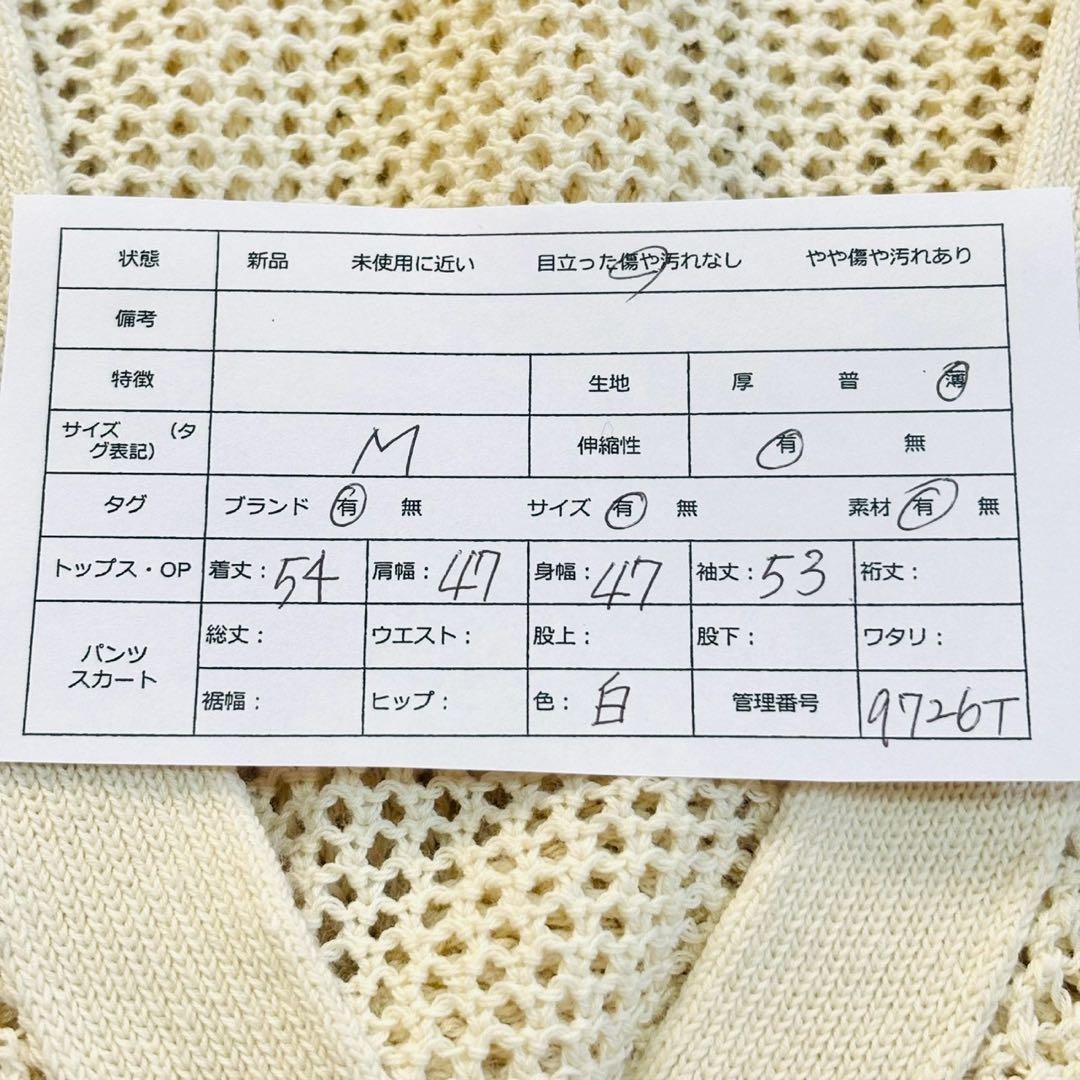 状態 新品 未使用に近い 目立った傷や汚れなし やや傷や汚れあり
備考
特徴 生地 厚 普 薄
サイズ （タ
グ表記） M 伸縮性 有 無
タグ ブランド 有 無 サイズ 有 無 素材 有 無
トップス・OP 着丈：54 肩幅：47 身幅：47 袖丈：53 裄丈：
パンツ
スカート
総丈： ウエスト： 股上： 股下： ワタリ：
裾幅： ヒップ： 色：白 管理番号 9726T